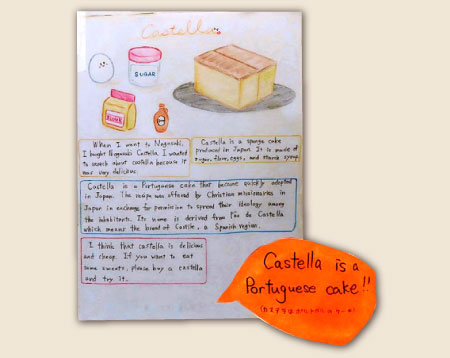 Castella
SUGAR
FLOUR
When I went to Nagasaki,
I bought Nagasaki Castella. I wanted
to search about castella because it
was very delicious.
Castella is a sponge cake
produced in Japan. It is made of
sugar, flour, eggs, and starch syrup.
Castella is a Portuguese cake that became quickly adopted
in Japan. The recipe was offered by Christian missionaries in
Japan in exchange for permission to spread their ideology among
the inhabitants. Its name is derived from Pão de Castella
which means the bread of Castile, a Spanish region.
I think that castella is delicious
and cheap. If you want to eat
some sweets, please buy a castella
and try it.
Castella is a
Portuguese cake!!